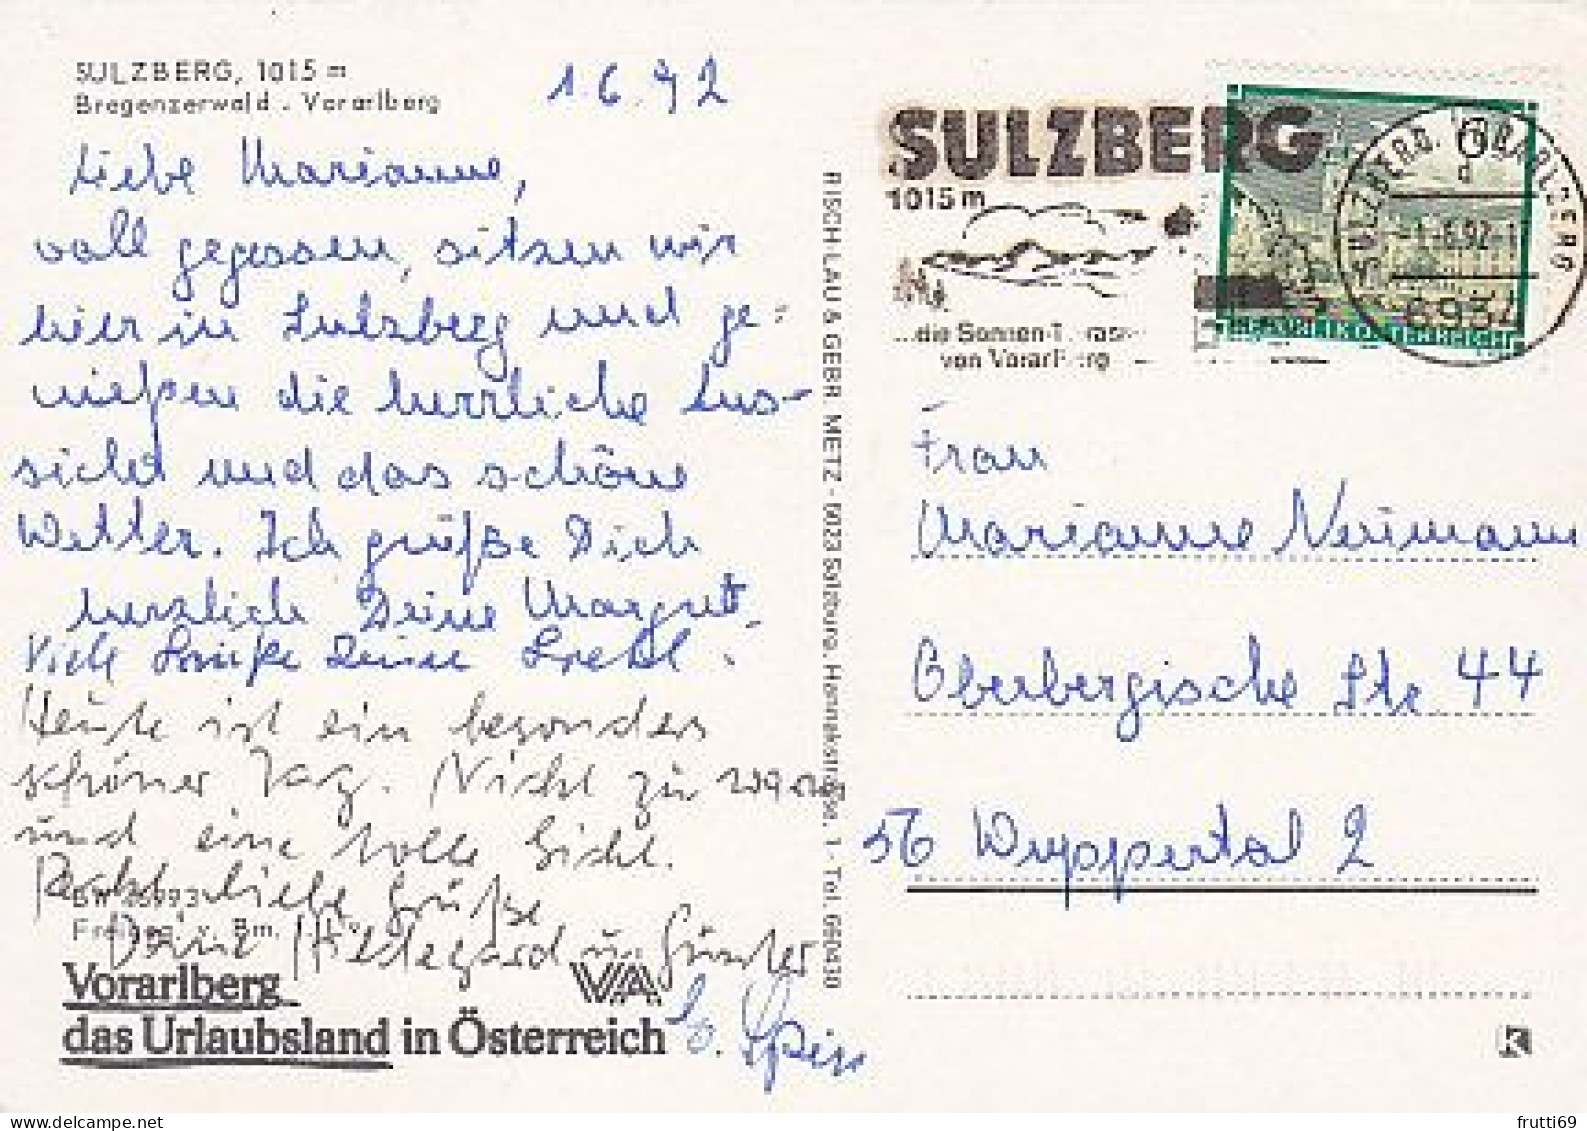 SULZBERG, 1015 m
Bregenzerwald - Vorarlberg
1.6.92
Liebe Marianne,
voll gegessen, sitzen wir
hier in Sulzberg und ge-
nießen die herrliche Aus-
sicht und das schöne
Wetter. Ich grüße Dich
herzlich Deine Margret.
Viele Grüße Deine Gretl.
Heute ist ein besonders
schöner Tag. Nicht zu warm
und eine tolle Sicht.
Recht liebe Grüße
Deine Hildegard u. Günter
Vorarlberg
das Urlaubsland in Österreich
VA
RISCH-LAU & GEBR. METZ - 5023 Salzburg, 1 - Tel. 660430
SULZBERG
1015 m
...die Sonnen-Terasse
von Vorarlberg
SULZBERG, VORARLBERG
-1.-6.92-1
6934
REPUBLIK ÖSTERREICH
Frau
Marianne Neumann
Oberbergische Str 44
56 Wuppertal 2
K
frutti69